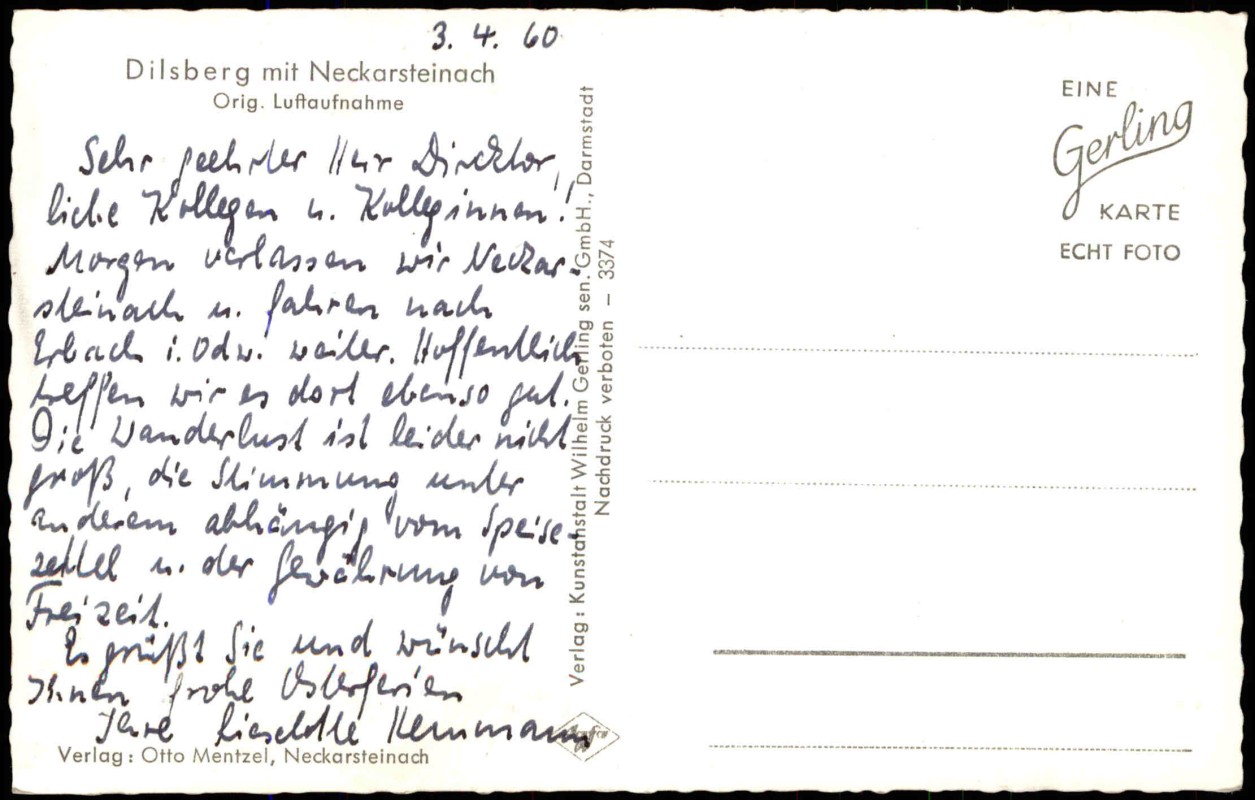 3. 4. 60
Dilsberg mit Neckarsteinach
Orig. Luftaufnahme
Sehr geehrter Herr Direktor,
liebe Kollegen u. Kolleginnen!
Morgen verlassen wir Neckar-
steinach u. fahren nach
Erbach i. Odw. weiter. Hoffentlich
treffen wir es dort ebenso gut.
Die Wanderlust ist leider nicht
groß, die Stimmung unter
anderem abhängig vom Speise-
zettel u. der Gewährung von
Freizeit.
Es grüßt Sie und wünscht
Ihnen frohe Osterferien
Ihre Lieselotte
Verlag: Otto Mentzel, Neckarsteinach
Verlag: Kunstanstalt Wilhelm Gerling sen. GmbH., Darmstadt
Nachdruck verboten – 3374
Agfa
EINE
Gerling
KARTE
ECHT FOTO